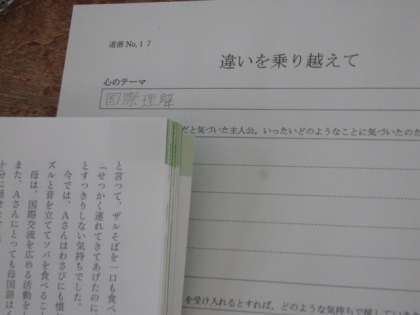 道徳 No,17
違いを乗り越えて
心のテーマ
国際理解
だと気づいた主人公。いったいどのようなことに気づいたのた
と言って、ザルそばを一口も食べ
「せっかく連れてきてあげたのに
とすっきりしない気持ちでした。
今では、Aさんはわさびにも慣
ズルと音を立ててソバを食べるこ
母は、国際交流を広める活動を
また、Aさんにとっても母国語は
を受け入れるとすれば、どのような気持ちで接していき